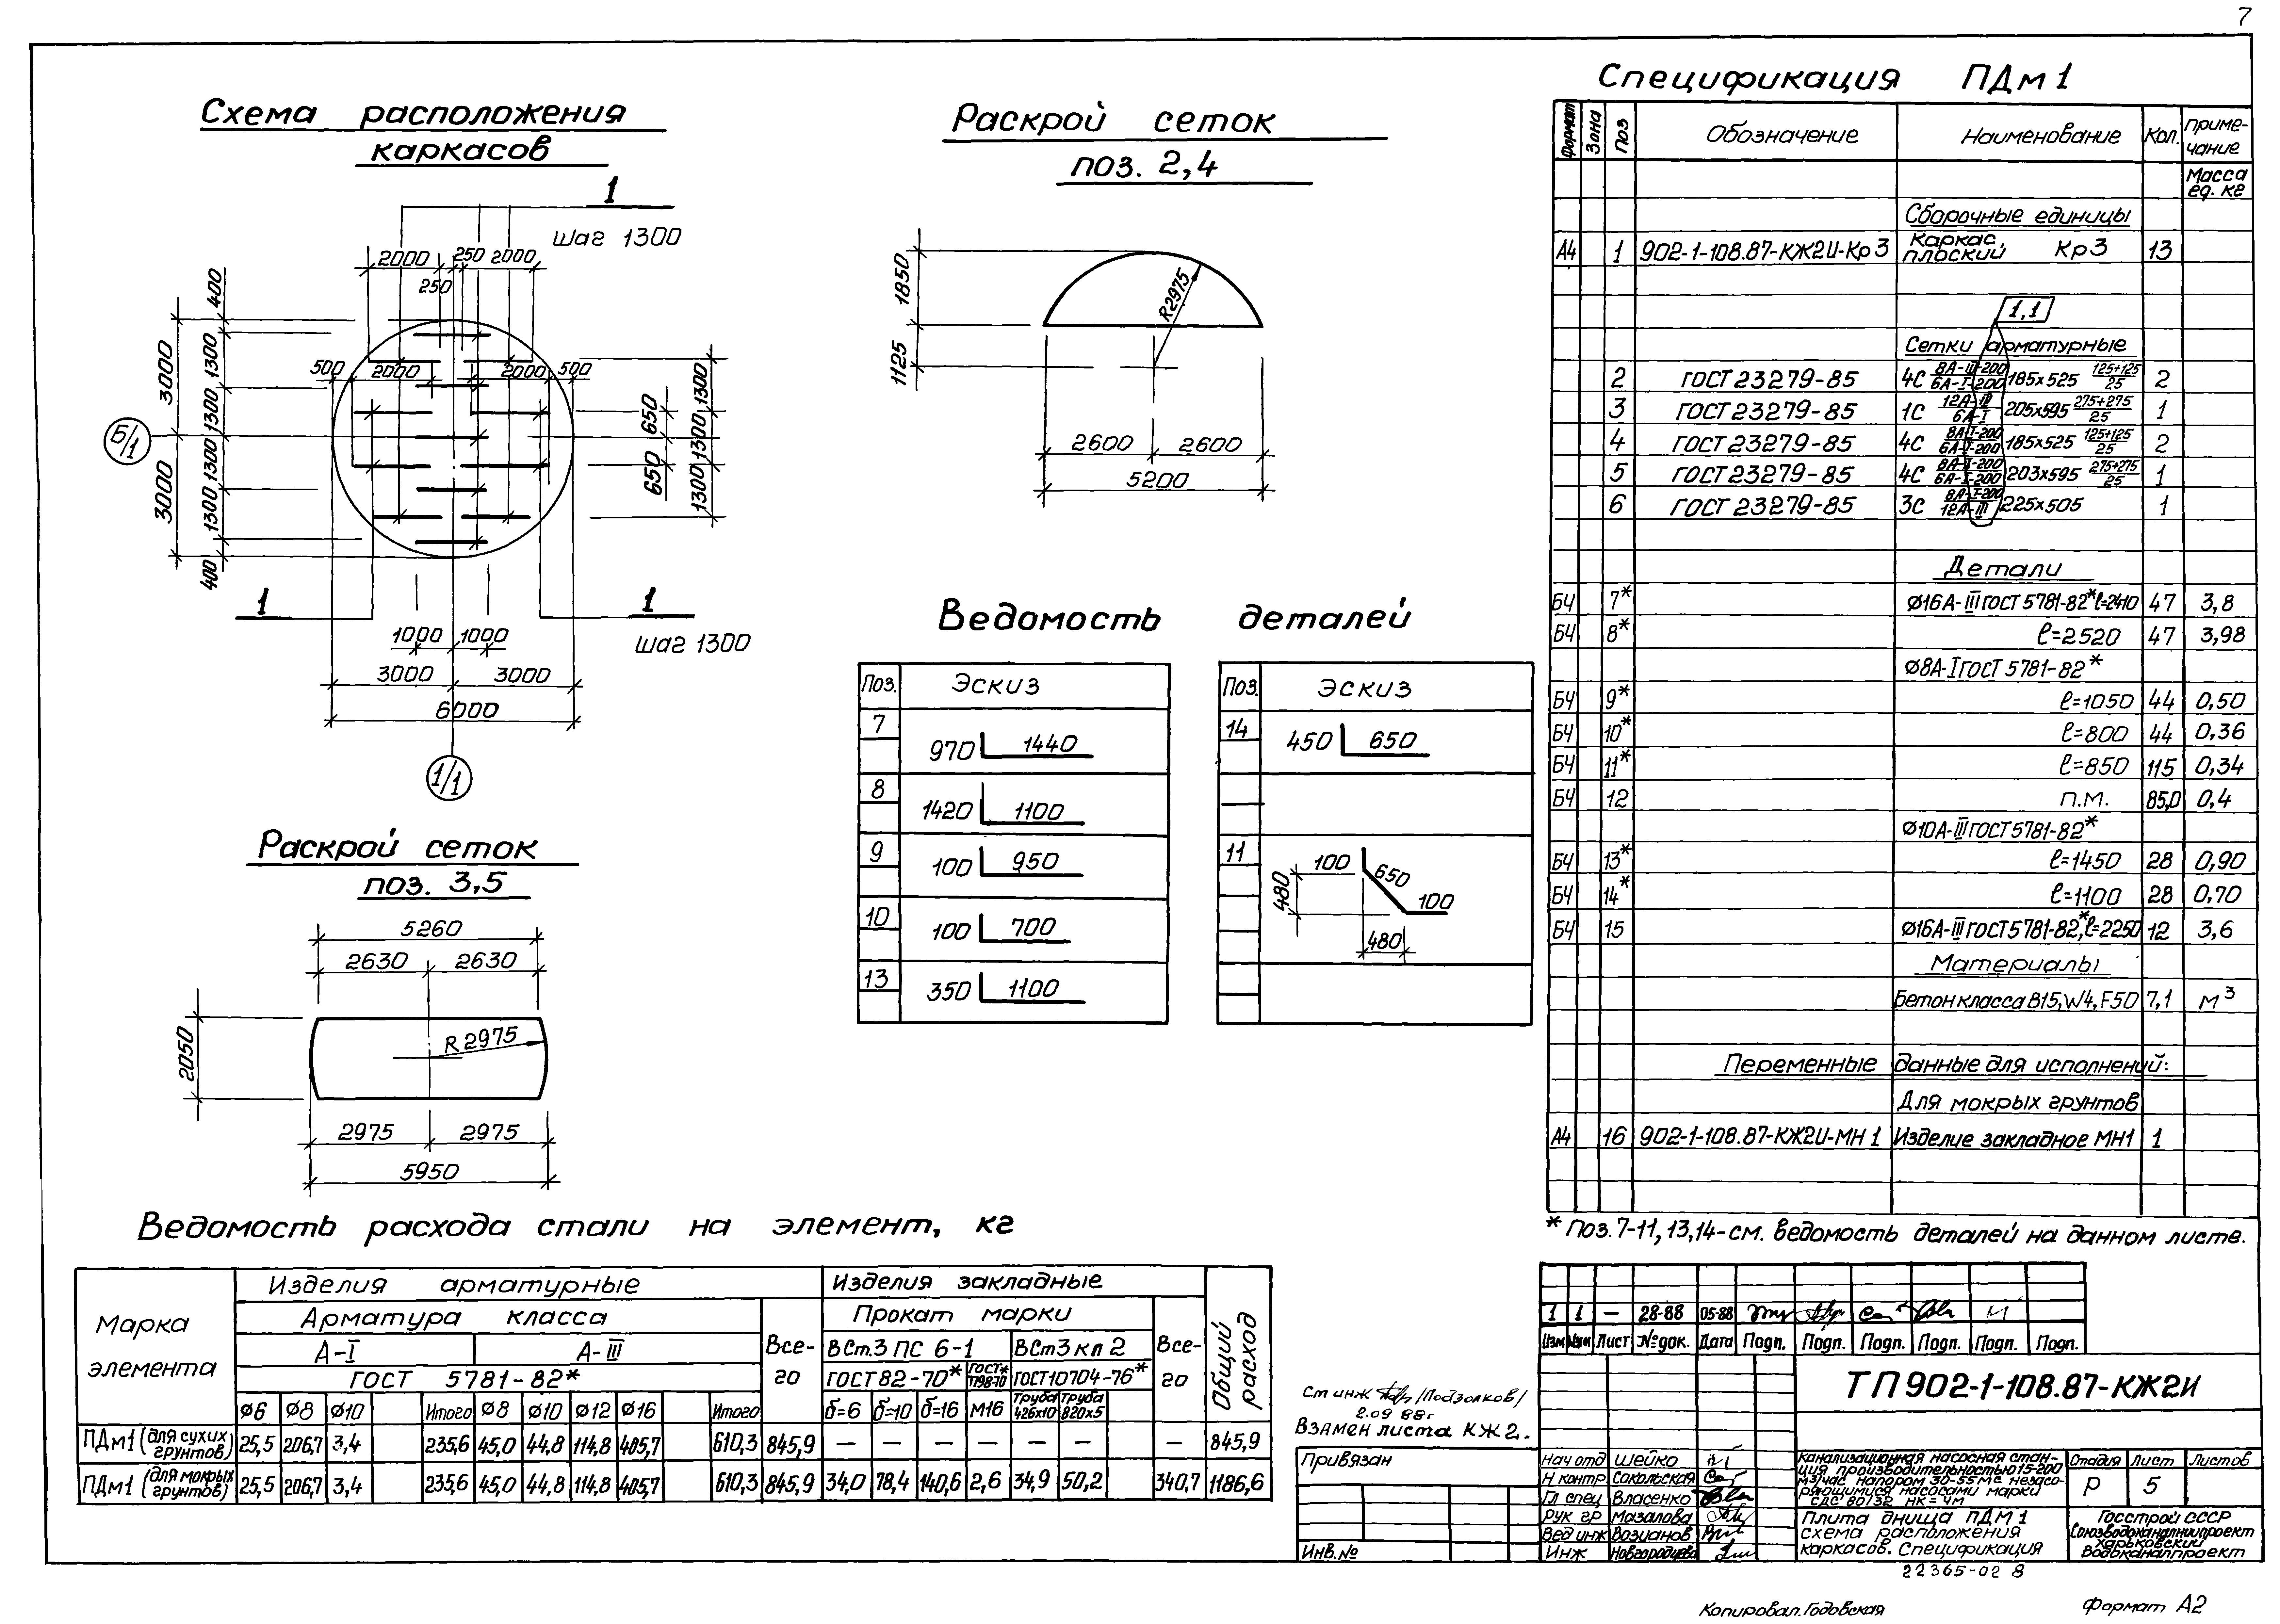 7
Схема расположения
каркасов
1
шаг 1300
2000 250 2000
250
400
1300
1300
1300
1300
400
3000
3000
500 2000 2000 500
650
650
1300
1300
1300
Б/1
1
1
шаг 1300
1000 1000
3000 3000
6000
1/1
Раскрой сеток
поз. 2,4
1850
1125
R2975
2600 2600
5200
Раскрой сеток
поз. 3,5
5260
2630 2630
2050
R 2975
2975 2975
5950
Ведомость деталей
Поз. Эскиз
7 970 1440
8 1420 1100
9 100 950
10 100 700
13 350 1100
Поз. Эскиз
14 450 650
11 100 650 100
480
480
Спецификация ПДм 1
Формат Зона Поз Обозначение Наименование Кол. Приме-
чание
Масса
ед. кг
Сборочные единицы
А4 1 902-1-108.87-КЖ2И-Кр3 Каркас плоский Кр3 13
1,1
Сетки арматурные
2 ГОСТ 23279-85 4С 8А-III-200/6А-I-200 185х525 125+125/25 2
3 ГОСТ 23279-85 1С 12А-III/6А-I 205х595 275+275/25 1
4 ГОСТ 23279-85 4С 8А-I-200/6А-I-200 185х525 125+125/25 2
5 ГОСТ 23279-85 4С 8А-I-200/6А-I-200 203х595 275+275/25 1
6 ГОСТ 23279-85 3С 8А-I-200/12А-III 225х505 1
Детали
БЧ 7* Ø16А-III ГОСТ 5781-82* ℓ=2410 47 3,8
БЧ 8* ℓ=2520 47 3,98
Ø8А-I ГОСТ 5781-82*
БЧ 9* ℓ=1050 44 0,50
БЧ 10* ℓ=800 44 0,36
БЧ 11* ℓ=850 115 0,34
БЧ 12 п.м. 85,0 0,4
Ø10А-III ГОСТ 5781-82*
БЧ 13* ℓ=1450 28 0,90
БЧ 14* ℓ=1100 28 0,70
БЧ 15 Ø16А-III ГОСТ 5781-82*, ℓ=2250 12 3,6
Материалы
Бетон класса В15, W4, F50 7,1 м³
Переменные данные для исполнений:
Для мокрых грунтов
А4 16 902-1-108.87-КЖ2И-МН 1 Изделие закладное МН1 1
* Поз. 7-11, 13, 14 - см. ведомость деталей на данном листе.
Ведомость расхода стали на элемент, кг
Марка элемента
Изделия арматурные Изделия закладные Общий расход
Арматура класса Все-
го Прокат марки Все-
го
А-I А-III ВСт.3 ПС 6-1 ВСт3 кп 2
ГОСТ 5781-82* ГОСТ 82-70* ГОСТ 10704-76*
Ø6 Ø8 Ø10 Итого Ø8 Ø10 Ø12 Ø16 Итого δ=6 δ=10 δ=16 М16 Труба 426х10 Труба 820х5
ПДм1 (для сухих грунтов) 25,5 206,7 3,4 235,6 45,0 44,8 114,8 405,7 610,3 845,9 — — — — — — — 845,9
ПДм1 (для мокрых грунтов) 25,5 206,7 3,4 235,6 45,0 44,8 114,8 405,7 610,3 845,9 34,0 78,4 140,6 2,6 34,9 50,2 340,7 1186,6
Ст инж /Подзолков/
2.09 88г
Взамен листа КЖ 2.
Привязан
Инв. №
1 1 — 28-88 05-88
Изм Лист № док. Дата Подп. Подп. Подп. Подп. Подп. Подп.
ТП 902-1-108.87-КЖ2И
Нач отд Шейко
Н контр Сокольская
Гл спец Власенко
Рук гр Мазалова
Вед инж Возианов
Инж Новгородцева
Канализационная насосная стан-
ция производительностью 15-200
м3/час напором 30-55 м с незасо-
ряющимися насосами марки
СДС 80/32 Нк = 4м
Стадия Лист Листов
Р 5
Плита днища ПДм 1
схема расположения
каркасов. Спецификация
Госстрой СССР
Союзводоканалниипроект
Харьковский
Водоканалпроект
22365-02 8
Копировал. Годовская
Формат А2